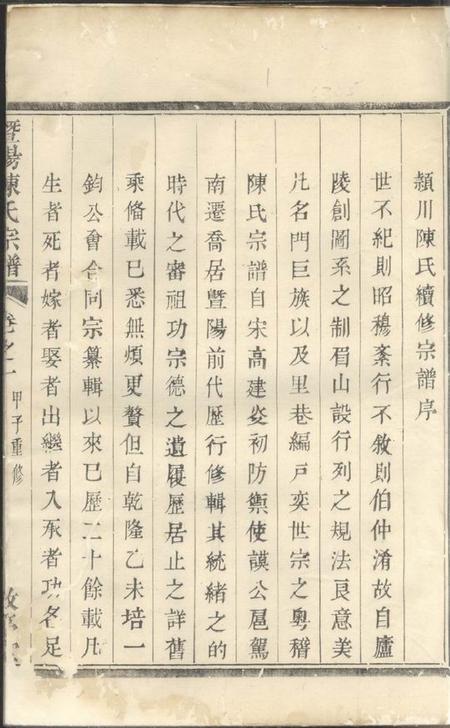 潁川陳氏續修宗譜序
世不紀則昭穆紊行不敘則伯仲淆故自廬
陵創圖系之制眉山設行列之規法良意美
凡名門巨族以及里巷編戶奕世宗之粵稽
陳氏宗譜自宋高建炎初防禦使謨公扈駕
南遷喬居暨陽前代歷行修輯其統緒之的
時代之審祖功宗德之遺履歷居止之詳舊
乘俻載已悉無煩更贅但自乾隆乙未培一
鈞公會合同宗纂輯以來已歷二十餘載凡
生者死者嫁者娶者出繼者入承者功名足
暨陽陳氏宗譜
卷之一
甲子重修